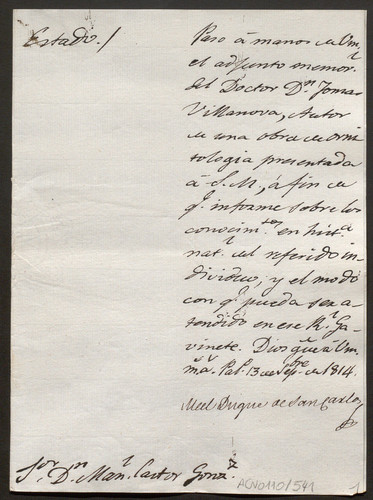 Estado./
Paso á manos de Vm.
el adjunto memor.l
del Doctor D.n Tomas
Villanova, Autor
de una obra de orni
tologia presentada
á S. M., á fin de
q.e informe sobre los
conocim.tos en hist.a
nat.l del referido in-
dividuo; y el modo
con q.e pueda ser a-
tendido en ese R.l Ga-
vinete. Dios gu.e á Vm.
m.s a.s Pal.o 13 de Sep.bre de 1814.
El Duque de San Carlos
S.or D.n Man.l Castor Gonz.z
ACN0110/541
1